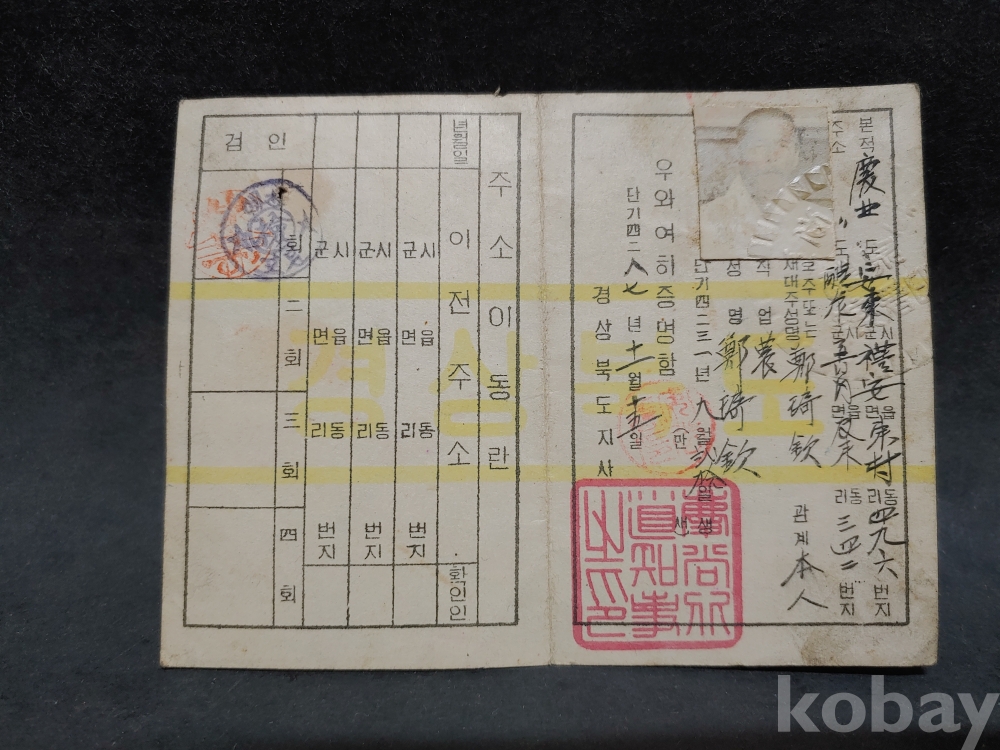 본적 慶北 도 安東 시군 禮安 읍면 東村 동리 四九六 번지
주소 〃 도 시군 읍면 동리 三四二 번지
호주또는
세대주성명 鄭琦欽 관계 本人
직업 農
성명 鄭琦欽
단기四二三一年 九월 일생
(만 생)
우와여히증명함
단기四二八七년十一월十五일
경상북도지사
慶尙北道知事之印
경상북도
주소이동란
년월일 이전주소 확인인
시군 읍면 동리 번지
시군 읍면 동리 번지
시군 읍면 동리 번지
검인
회
二회
三회
四회
kobay